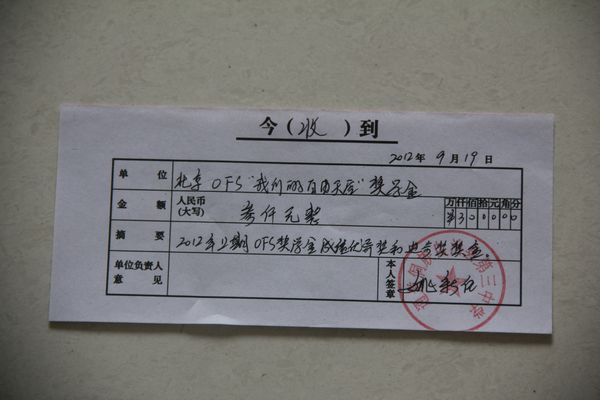 今（收）到
2012年9月19日
单位 北京OFS"我们的自由天空"奖学金
金额 人民币(大写) 叁仟元整 万仟佰拾元角分 ¥300000
摘要 2012年上期OFS奖学金成绩优异奖和进步奖奖金。
单位负责人意见 本人签章
第三中学